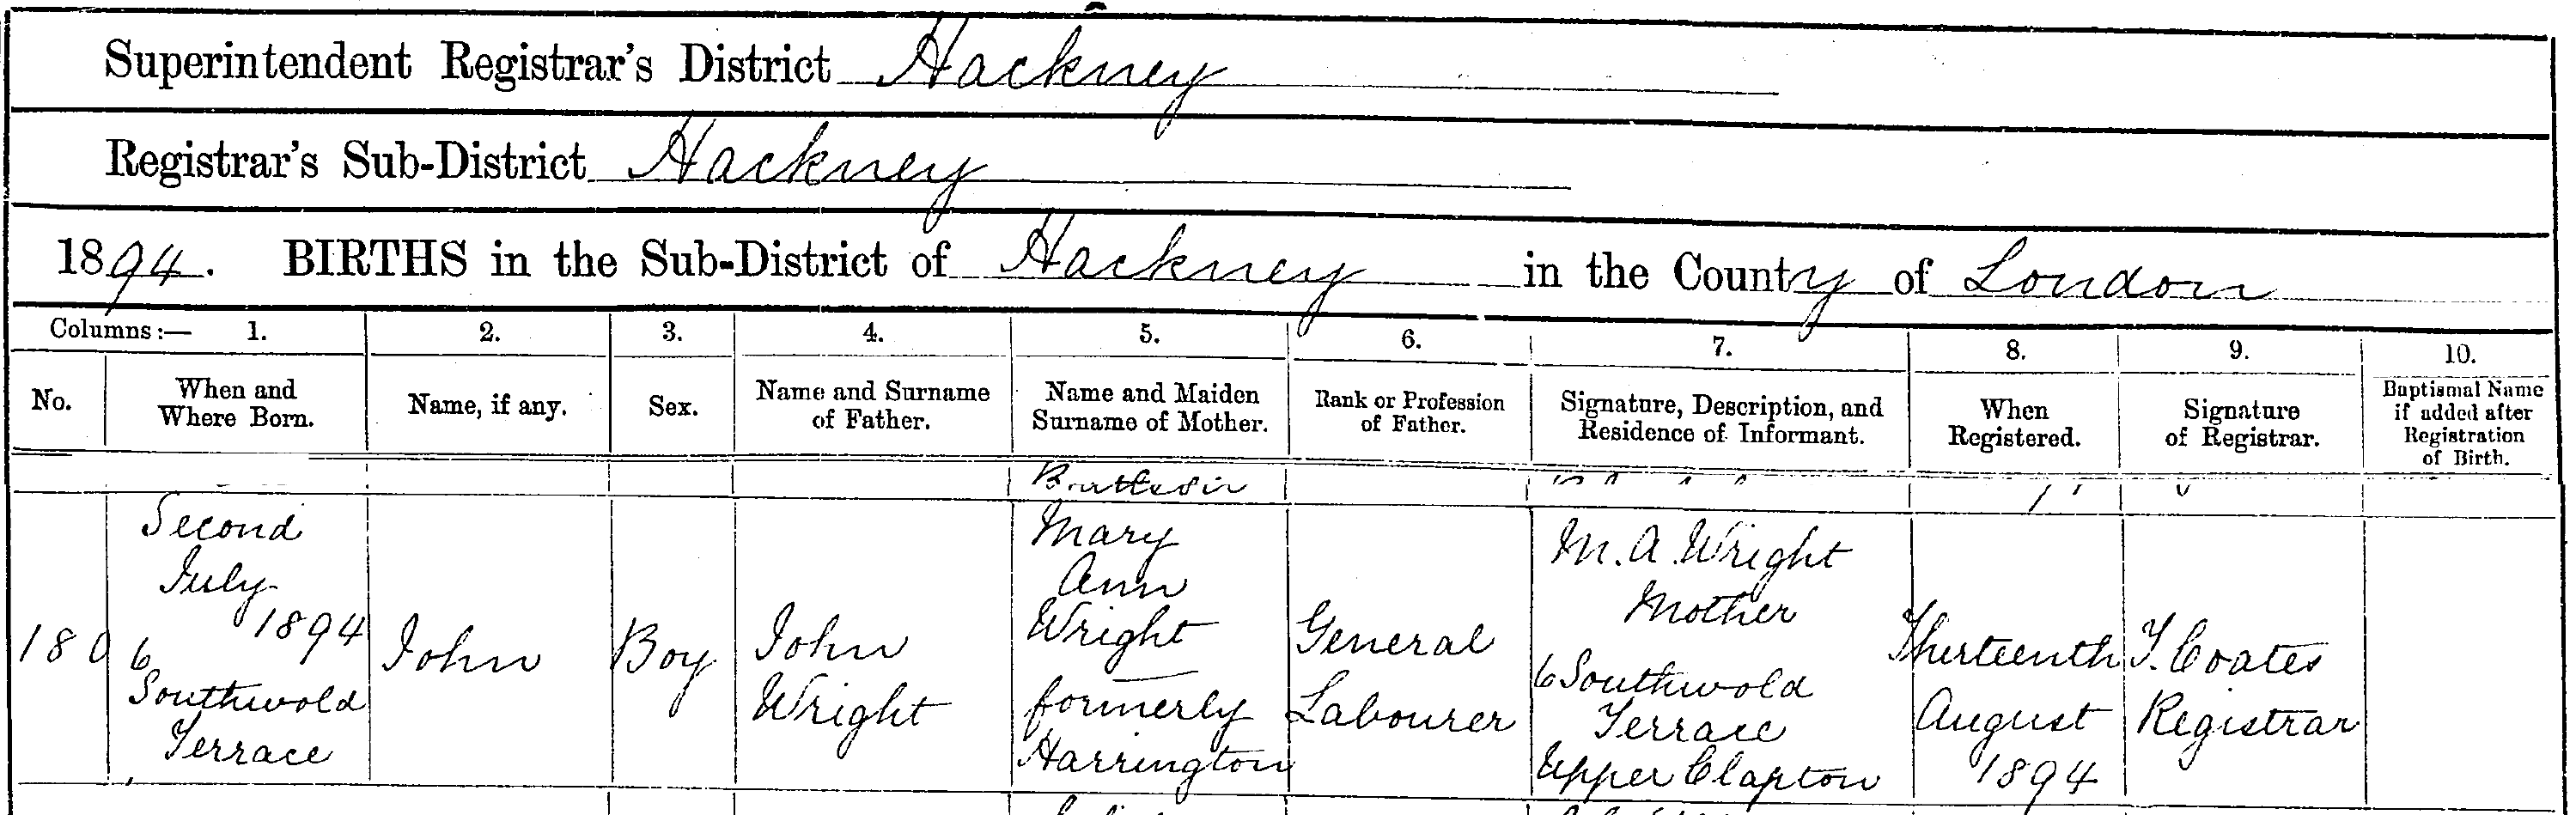 Superintendent Registrar's District Hackney
Registrar's Sub-District Hackney
1894. BIRTHS in the Sub-District of Hackney in the County of London
Columns:— 1. 2. 3. 4. 5. 6. 7. 8. 9. 10.
No.
When and
Where Born.
Name, if any.
Sex.
Name and Surname
of Father.
Name and Maiden
Surname of Mother.
Rank or Profession
of Father.
Signature, Description, and
Residence of Informant.
When
Registered.
Signature
of Registrar.
Baptismal Name
if added after
Registration
of Birth.
180
Second
July
1894
6
Southwold
Terrace
John
Boy
John
Wright
Mary
Ann
Wright
formerly
Harrington
General
Labourer
M. A. Wright
Mother
6 Southwold
Terrace
Upper Clapton
Thirteenth
August
1894
T. Coates
Registrar